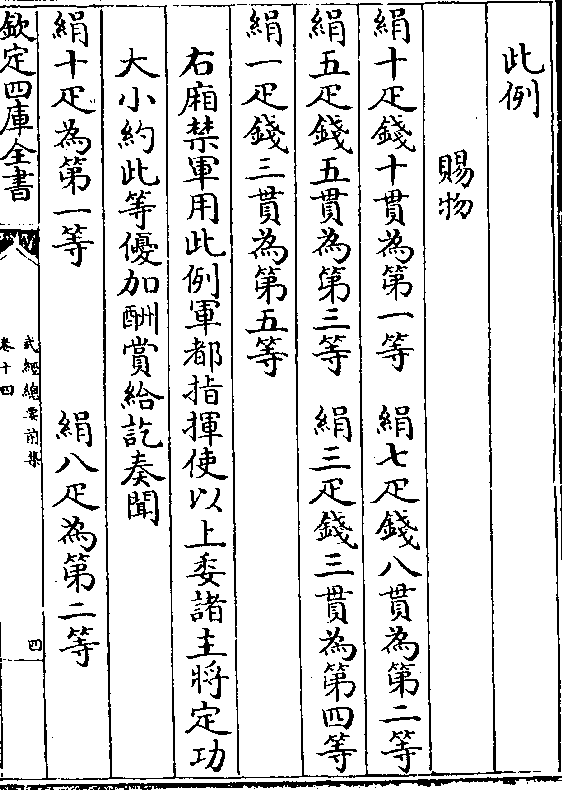 此例
賜物
絹十疋錢十貫為第一等　絹七疋錢八貫為第二等
絹五疋錢五貫為第三等　絹三疋錢三貫為第四等
絹一疋錢三貫為第五等
右廂禁軍用此例軍都指揮使以上委諸主將定功
大小約此等優加酬賞給訖奏聞
絹十疋為第一等　絹八疋為第二等
欽定四庫全書
武經總要前集
卷十四
四